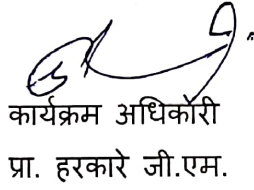 कार्यक्रम अधिकारी
प्रा. हरकारे जी.एम.